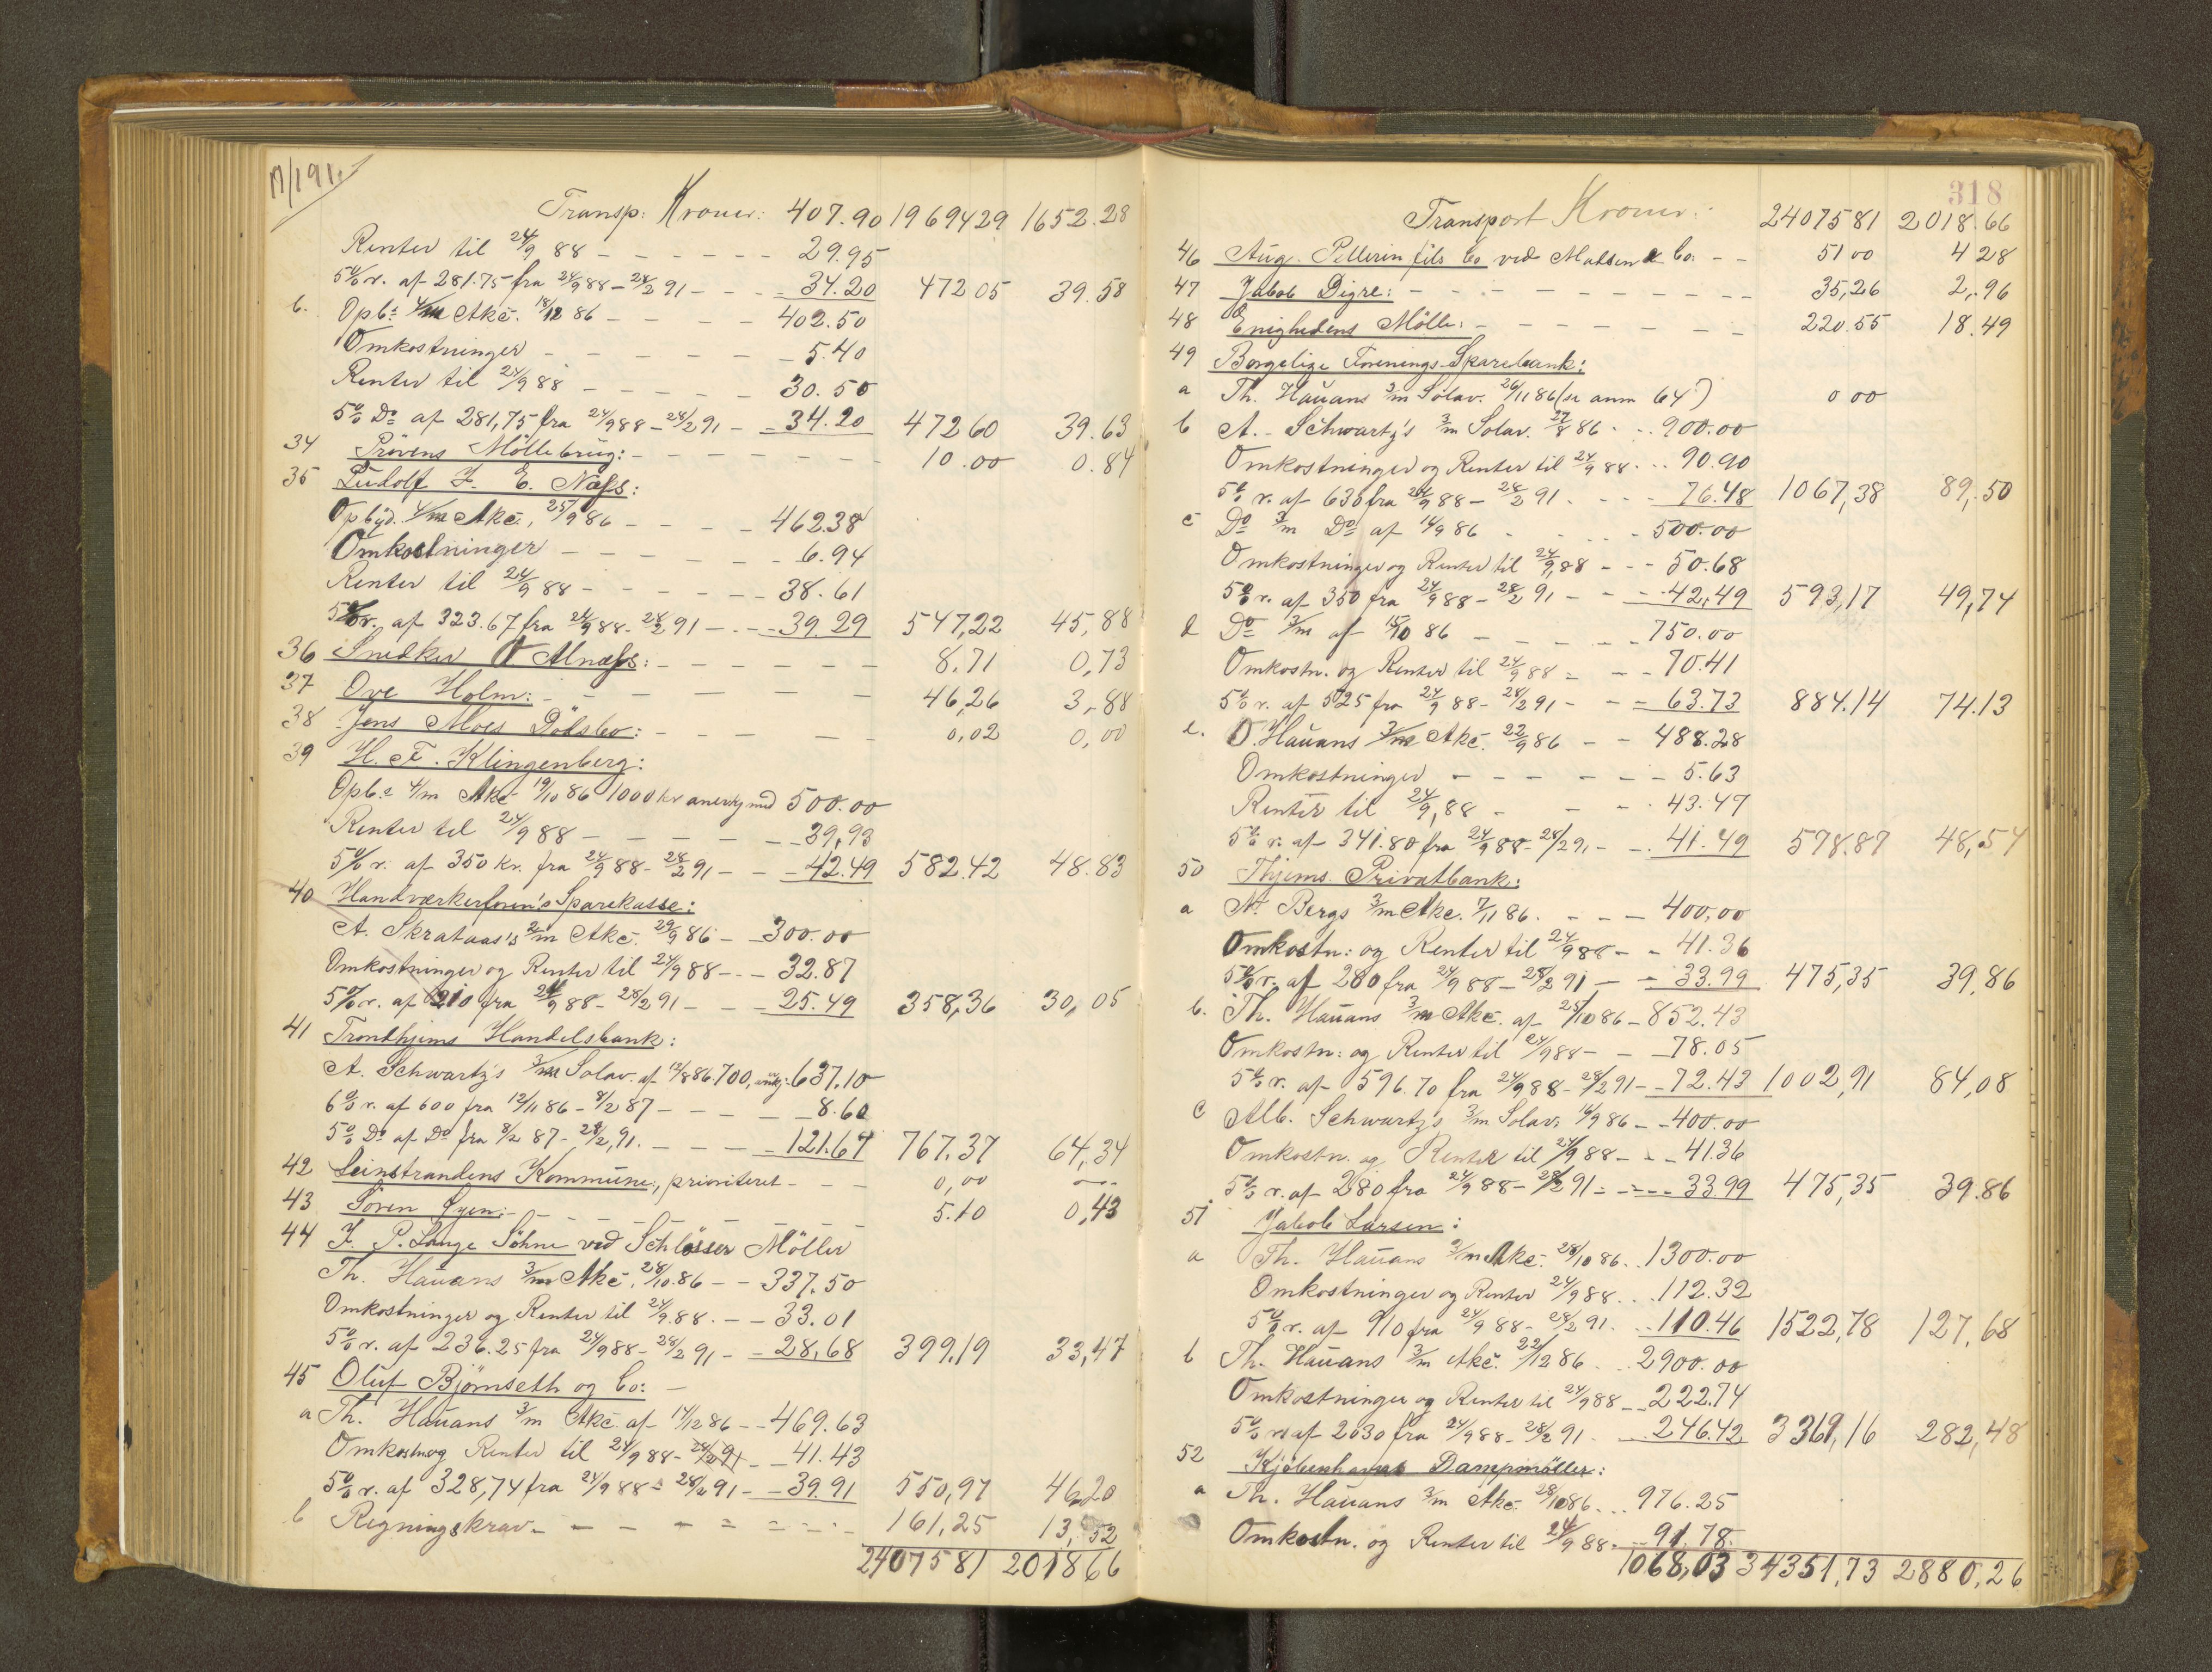 Transp: Kroner: 407.90 1969429 1652.28
Renter til 24/9 88 - - - - - - 29.95
5% r. af 281.75 fra 24/9 88 - 28/2 91 - - - 34.20 472 05 39.58
b. Opb: 4/m Akc. 18/12 86 - - - - 402.50
Omkostninger - - - - - - 5.40
Renter til 24/9 88 - - - - - 30.50
5% Do af 281,75 fra 24/9 88 - 28/2 91 - - 34.20 472 60 39.63
34 Prövens Möllebrug: - - - - - - - 10.00 0.84
35 Ludolf J. E. Næss:
Opbyd. 4/m Akc. 25/9 86 - - - - 462.38
Omkostninger - - - - - 6.94
Renter til 24/9 88 - - - - - - 38.61
5% r. af 323.67 fra 24/9 88 - 28/2 91 - - - 39.29 547,22 45,88
36 Snedker O Alnæss: - - - - - - 8.71 0,73
37 Ove Holm: - - - - - - - 46,26 3,88
38 Jens Moes Dödsbo: - - - - - 0,02 0,00
39 H. F. Klingenberg:
Opb: 4/m Akc 19/10 86 1000 kr anerkj med 500.00
Renter til 24/9 88 - - - - - - 39,93
5% r. af 350 kr. fra 24/9 88 - 28/2 91 - - - 42.49 582.42 48.83
40 Handværkerforen's Sparekasse:
A. Skrataas's 2/m Akc. 29/9 86 - - 300.00
Omkostninger og Renter til 24/9 88 - - - 32.87
5% r. af 210 fra 24/9 88 - 28/2 91 - - - 25.49 358,36 30,05
41 Trondhjems Handelsbank:
A. Schwartz's 3/m Solav. af 12/8 86 700, anerkj: 637.10
6% r. af 600 fra 12/11 86 - 8/2 87 - - - - - 8.60
5% Do af Do fra 8/2 87 - 28/2 91. - - - - 121.67 767.37 64,34
42 Leinstrandens Kommune, prioriteret - - - 0,00 -..-
43 Sören Öyen: - - - - - - - 5.10 0,43
44 J. P. Lange Söhne ved Schlösser Möller
Th. Hauans 3/m Akc. 28/10 86 - - 337.50
Omkostninger og Renter til 24/9 88. - - 33.01
5% r. af 236.25 fra 24/9 88 - 28/2 91 - - 28,68 399,19 33,47
45 Oluf Björnseth og Co: -
a Th. Hauans 3/m Akc. af 14/12 86 - - 469.63
Omkostn og Renter til 24/9 88 - 28/2 91 - - 41.43
5% r. af 328,74 fra 24/9 88 - 28/2 91 - - 39.91 550,97 46,20
b Regningskrav - - - - - - - - 161,25 13,52
2407581 201866
318
Transport Kroner: 2407581 2018.66
46 Aug. Pellerin fils Co ved Matsen & Co: - - 51 00 4 28
47 Jakob Digre: - - - - - - - - - 35,26 2,96
48 Enighedens Mölle: - - - - - - - 220.55 18.49
49 Borgelige Forenings-Sparebank:
a Th. Hauans 3/m Solav. 26/11 86 (se anm 64) 0 00
b A. Schwartz's 3/m Solav. 27/8 86 - - 900.00
Omkostninger og Renter til 24/9 88 - - - 90.90
5% r. af 630 fra 24/9 88 - 28/2 91. - - - 76.48 1067,38 89,50
c Do 3/m Do af 14/9 86 - - - - 500.00
Omkostninger og Renter til 24/9 88 - - - 50.68
5% r. af 350 fra 24/9 88 - 28/2 91 - - - 42,49 593,17 49,74
d Do 3/m af 15/10 86 - - - - - 750.00
Omkostn. og Renter til 24/9 88 = - - 70.41
5% r. af 525 fra 24/9 88 - 28/2 91 - - - 63.73 884.14 74.13
e. O. Hauans 3/m Akc. 22/9 86 - - 488.28
Omkostninger - - - - - - 5.63
Renter til 24/9 88 - - - 43.47
5% r. af 341.80 fra 24/9 88 - 28/2 91 - - 41.49 578.87 48,54
50 Thjems Privatbank:
a N. Bergs 3/m Akc. 7/11 86. - - - 400,00
Omkostn: og Renter til 24/9 88 - - 41.36
5% r. af 280 fra 24/9 88 - 28/2 91 - - 33.99 475,35 39,86
b. Th. Hauans 3/m Akc. af 25/10 86 - 852.43
Omkostn: og Renter til 24/9 88 - - 78.05
5% r. af 596.70 fra 24/9 88 - 28/2 91 - - 72.43 1002,91 84,08
c Alb. Schwartz's 3/m Solav. 16/9 86 - - 400.00
Omkostn. og Renter til 24/9 88 - - - 41.36
5% r. af 280 fra 24/9 88 - 28/2 91 - - - - 33.99 475,35 39.86
51 Jakob Larsen:
a Th. Hauans 3/m Akc. 28/10 86.. 1300.00
Omkostninger og Renter 24/9 88... 112.32
5% r. af 910 fra 24/9 88 - 28/2 91. - 110.46 1522,78 127,68
b Th. Hauans 3/m Akc. 22/12 86... 2900.00
Omkostninger og Renter til 24/9 88 - - 222.74
5% r. af 2030 fra 24/9 88 - 28/2 91. - 246.42 3369,16 282,48
52 Kjöbenhavns Dampmöller:
a Th. Hauans 3/m Akc. 28/10 86... 976.25
Omkostn. og Renter til 24/9 88 - - 91.78.
1068,03 34351,73 2880,26